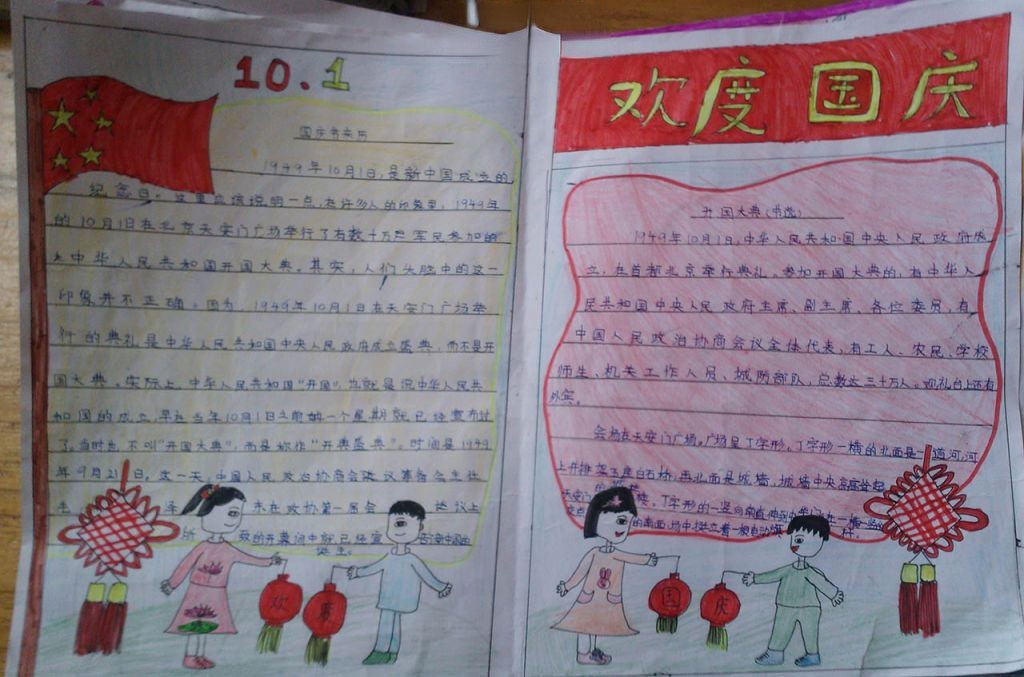 10.1
国庆节来历
1949年10月1日,是新中国成立的
纪念日。这里应该说明一点,在许多人的印象里,1949年
的10月1日在北京天安门广场举行了有数十万军民参加的
中华人民共和国开国大典。其实,人们头脑中的这一
印象并不正确。因为,1949年10月1日在天安门广场举
行的典礼是中华人民共和国中央人民政府成立盛典,而不是开
国大典。实际上,中华人民共和国"开国",也就是说中华人民共
和国的成立,早在当年10月1日之前的一个星期就已经宣布过
了。当时也不叫"开国大典",而是称作"开典盛典"。时间是1949
年9月21日。这一天,中国人民政治协商会议筹备会主任
泽 东在政协第一届会 议上
所 致的开幕词中就已经宣 告新中国的
诞生。
欢 赛
欢度国庆
开国大典(节选)
1949年10月1日,中华人民共和国中央人民政府成
立,在首都北京举行典礼。参加开国大典的,有中华人
民共和国中央人民政府主席、副主席、各位委员,有
中国人民政治协商会议全体代表,有工人、农民、学校
师生、机关工作人员、城防部队,总数达三十万人。观礼台上还有
外宾。
会场在天安门广场。广场呈丁字形。丁字形一横的北面是一道河,河
上并排架五座白石桥;再北面是城墙,城墙中央高高耸起
天安门的城楼。丁字形的一竖向南直伸到中华门。在一横一竖的
交点的南面,场中挺立着一根电动旗杆。
国 庆